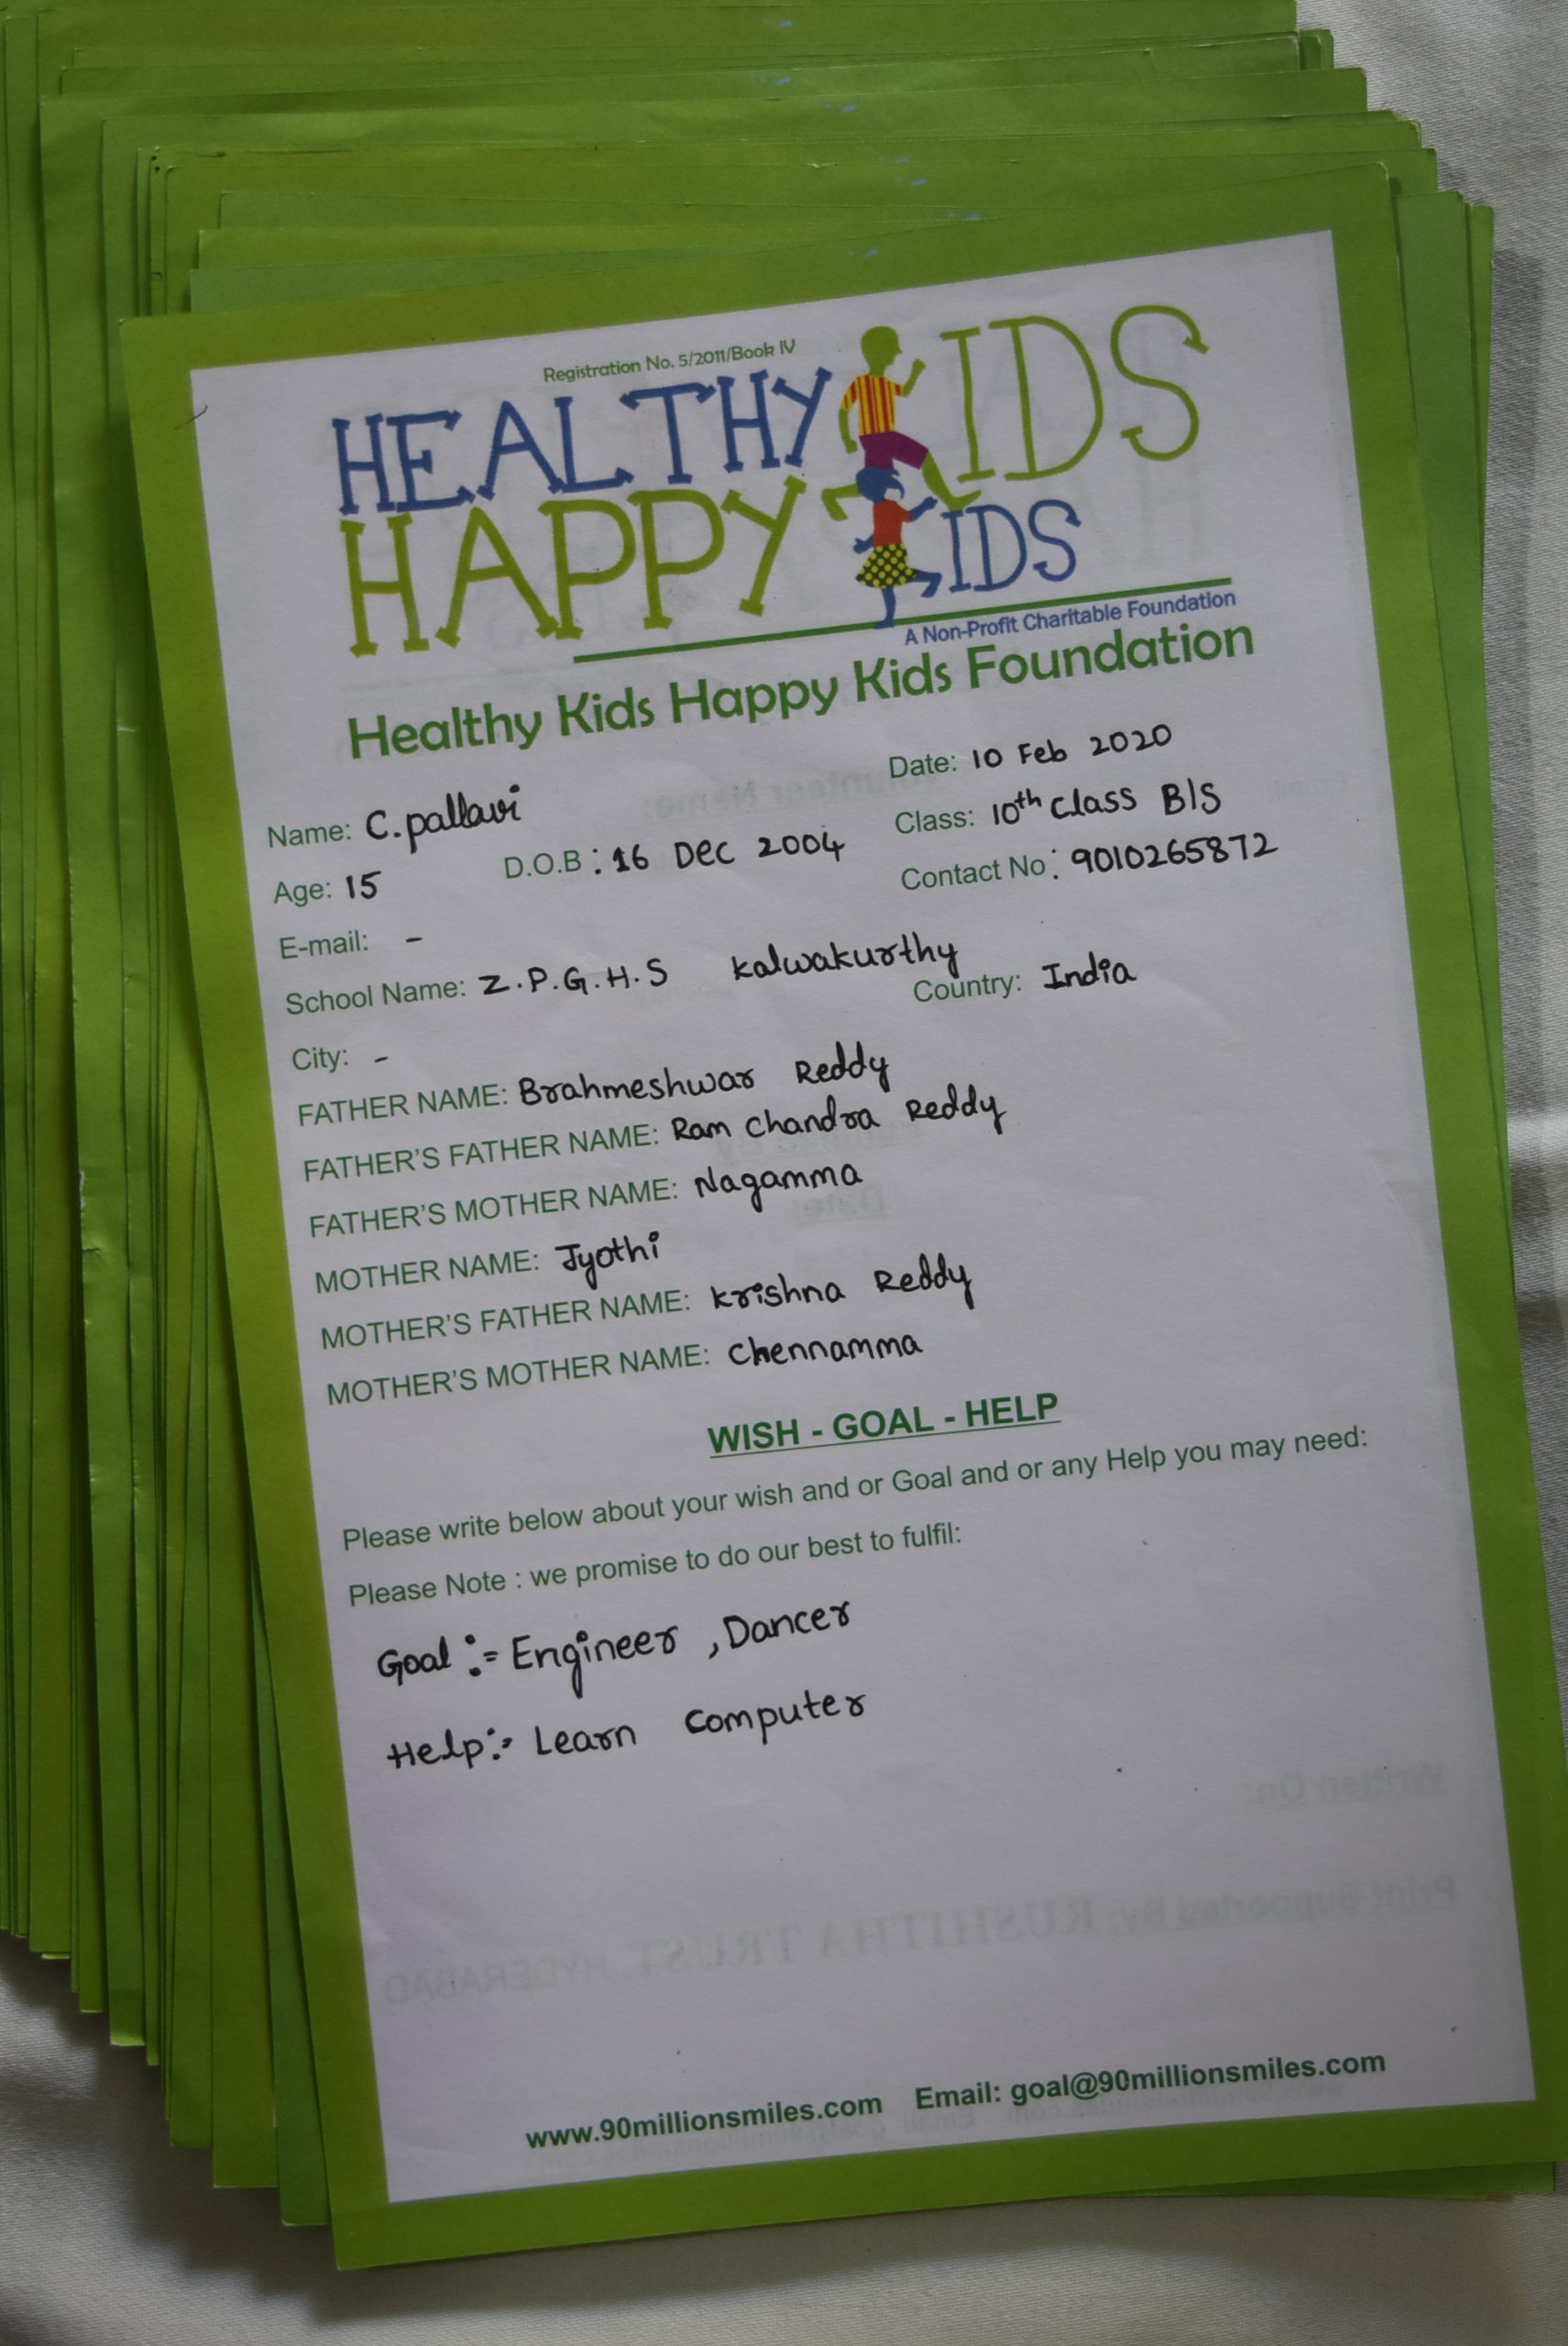 Registration No. 5/2011/Book IV
HEALTHY KIDS
HAPPY KIDS
A Non-Profit Charitable Foundation
Healthy Kids Happy Kids Foundation
Date: 10 Feb 2020
Name: C.pallavi
Class: 10th class B/S
Age: 15 D.O.B : 16 Dec 2004
Contact No : 9010265872
E-mail: -
School Name: Z.P.G.H.S kalwakurthy
City: - Country: India
FATHER NAME: Brahmeshwar Reddy
FATHER'S FATHER NAME: Ram chandra Reddy
FATHER'S MOTHER NAME: Nagamma
MOTHER NAME: Jyothi
MOTHER'S FATHER NAME: krishna Reddy
MOTHER'S MOTHER NAME: chennamma
WISH - GOAL - HELP
Please write below about your wish and or Goal and or any Help you may need:
Please Note : we promise to do our best to fulfil:
Goal :- Engineer , Dancer
Help:- Learn computer
www.90millionsmiles.com Email: goal@90millionsmiles.com